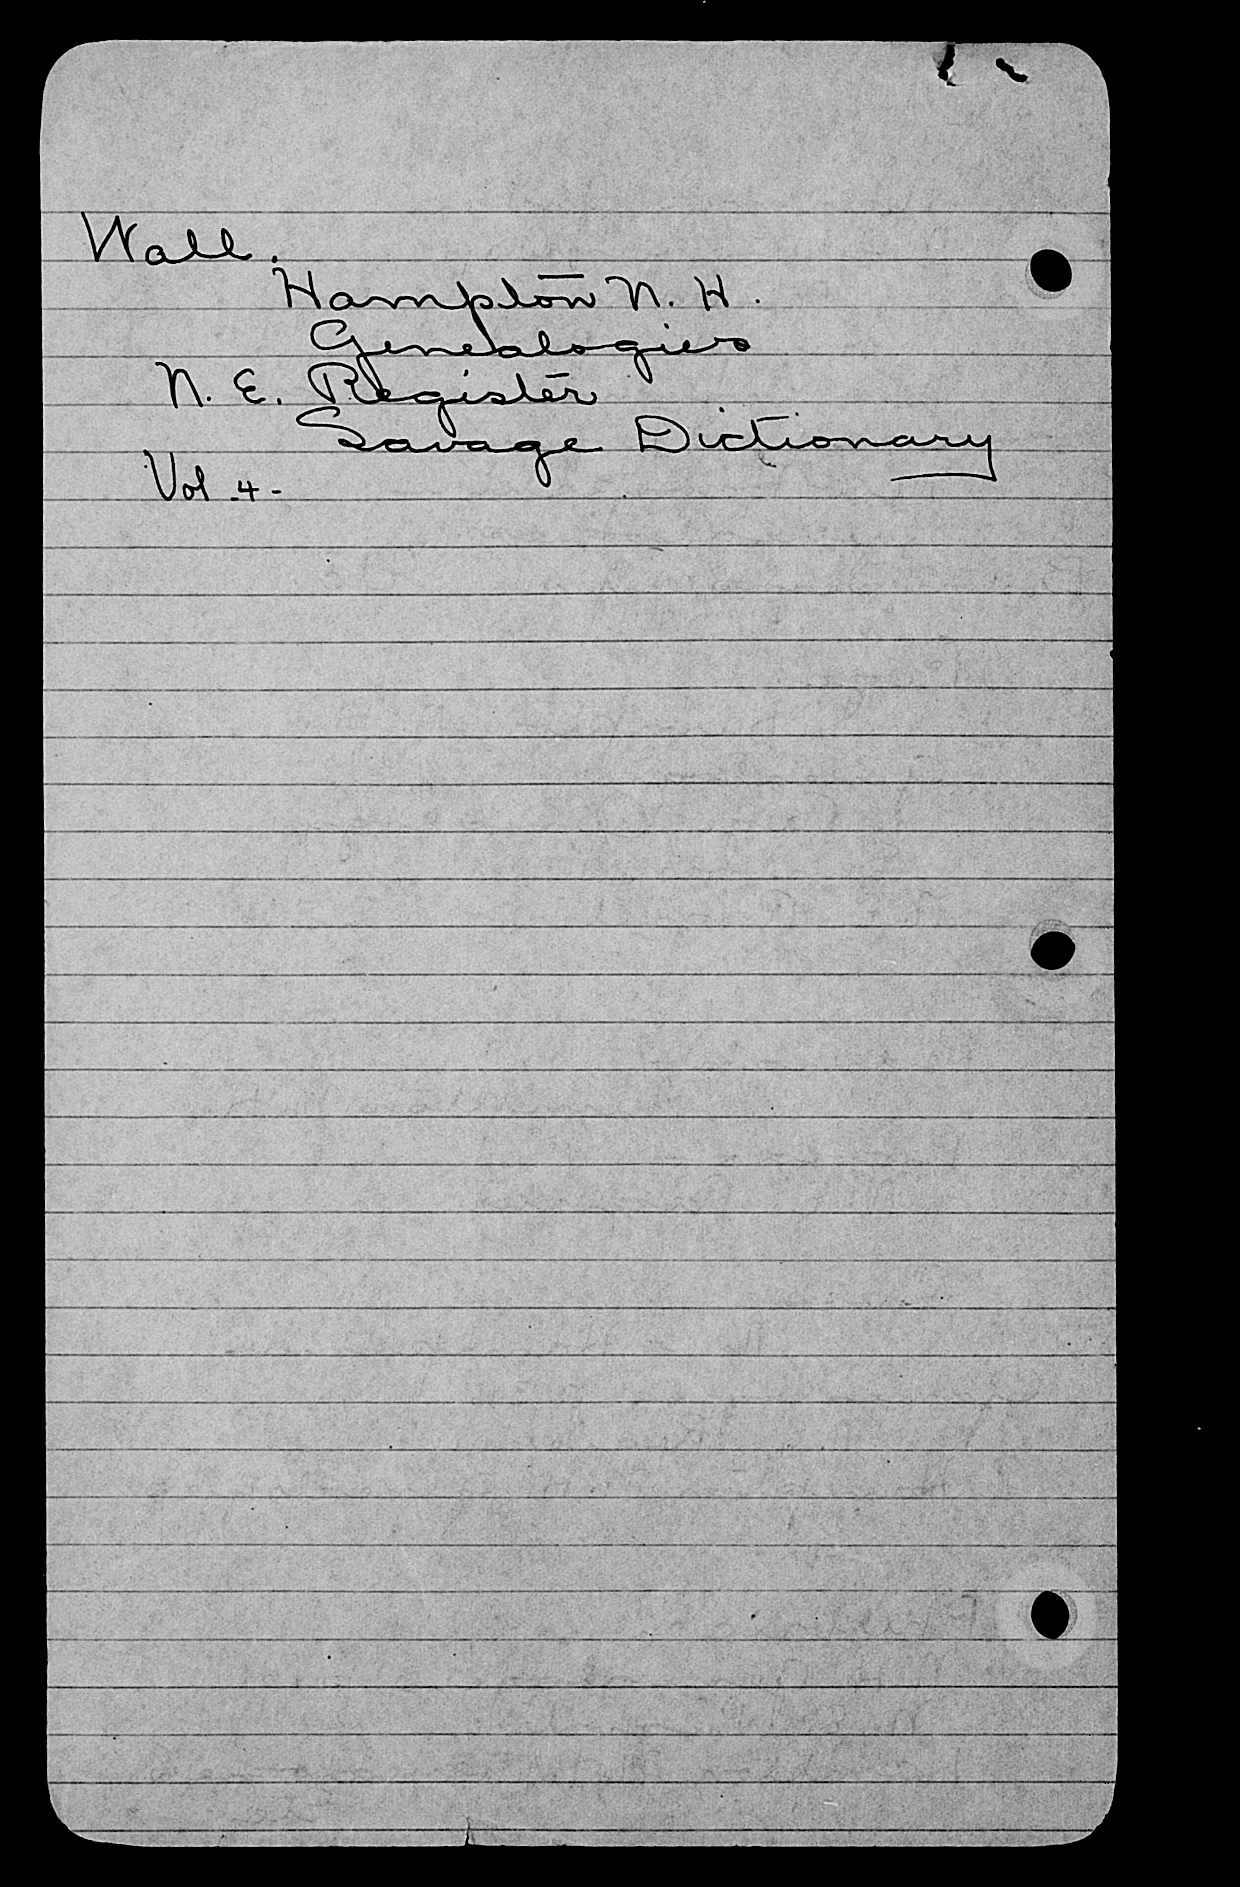 Wall.
Hampton N. H.
Genealogies
N. E. Register
Savage Dictionary
Vol -4-